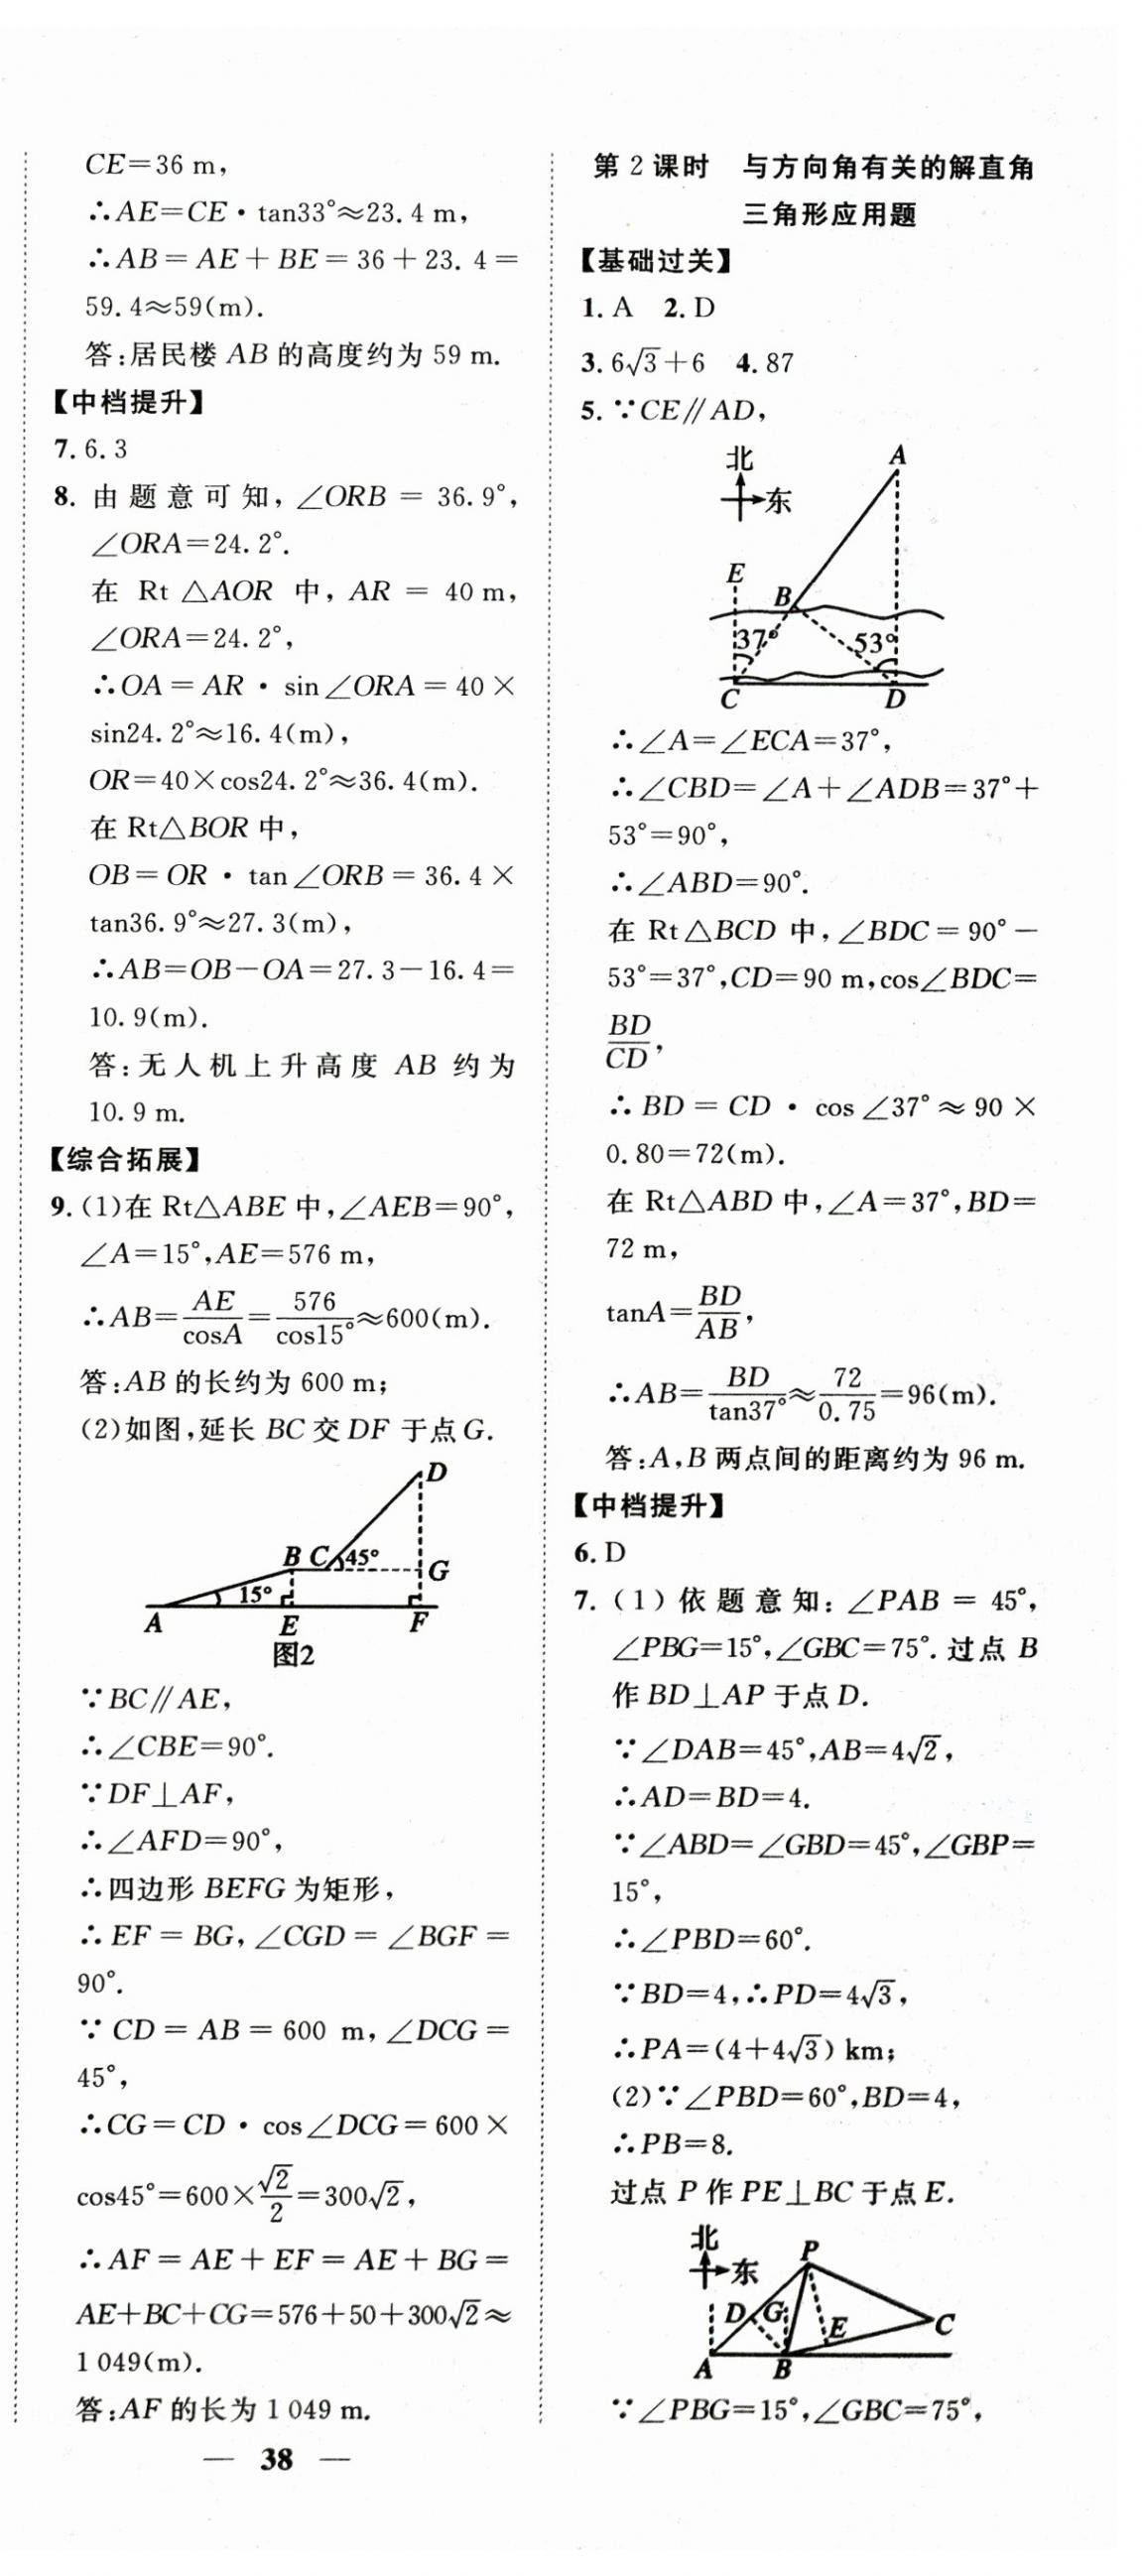 CE=36 m,
∴AE=CE·tan33°≈23.4 m,
∴AB=AE+BE=36+23.4=
59.4≈59(m).
答:居民楼 AB 的高度约为 59 m.
【中档提升】
7.6.3
8. 由题意可知,∠ORB=36.9°,
∠ORA=24.2°.
在 Rt△AOR 中, AR=40 m,
∠ORA=24.2°,
∴OA=AR·sin∠ORA=40×
sin24.2°≈16.4(m),
OR=40×cos24.2°≈36.4(m).
在 Rt△BOR 中,
OB=OR·tan∠ORB=36.4×
tan36.9°≈27.3(m),
∴AB=OB−OA=27.3−16.4=
10.9(m).
答:无人机上升高度 AB 约为
10.9 m.
【综合拓展】
9.(1)在 Rt△ABE 中,∠AEB=90°,
∠A=15°,AE=576 m,
∴AB=AE/cosA=576/cos15°≈600(m).
答:AB 的长约为 600 m;
(2)如图,延长 BC 交 DF 于点 G.
D
B C 45° G
15°
A E F
图2
∵BC∥AE,
∴∠CBE=90°.
∵DF⊥AF,
∴∠AFD=90°,
∴四边形 BEFG 为矩形,
∴EF=BG,∠CGD=∠BGF=
90°.
∵CD=AB=600 m,∠DCG=
45°,
∴CG=CD·cos∠DCG=600×
cos45°=600×√2/2=300√2,
∴AF=AE+EF=AE+BG=
AE+BC+CG=576+50+300√2≈
1 049(m).
答:AF 的长为 1 049 m.
— 38 —
第 2 课时 与方向角有关的解直角
三角形应用题
【基础过关】
1. A 2. D
3. 6√3+6 4. 87
5. ∵CE∥AD,
北 A
东
E
B
37° 53°
C D
∴∠A=∠ECA=37°,
∴∠CBD=∠A+∠ADB=37°+
53°=90°,
∴∠ABD=90°.
在 Rt△BCD 中,∠BDC=90°−
53°=37°,CD=90 m,cos∠BDC=
BD/CD,
∴BD=CD·cos∠37°≈90×
0.80=72(m).
在 Rt△ABD 中,∠A=37°,BD=
72 m,
tanA=BD/AB,
∴AB=BD/tan37°≈72/0.75=96(m).
答:A,B 两点间的距离约为 96 m.
【中档提升】
6. D
7.(1)依题意知:∠PAB=45°,
∠PBG=15°,∠GBC=75°.过点 B
作 BD⊥AP 于点 D.
∵∠DAB=45°,AB=4√2,
∴AD=BD=4.
∵∠ABD=∠GBD=45°,∠GBP=
15°,
∴∠PBD=60°.
∵BD=4,∴PD=4√3,
∴PA=(4+4√3) km;
(2)∵∠PBD=60°,BD=4,
∴PB=8.
过点 P 作 PE⊥BC 于点 E.
北 P
东
D G E C
A B
∵∠PBG=15°,∠GBC=75°,